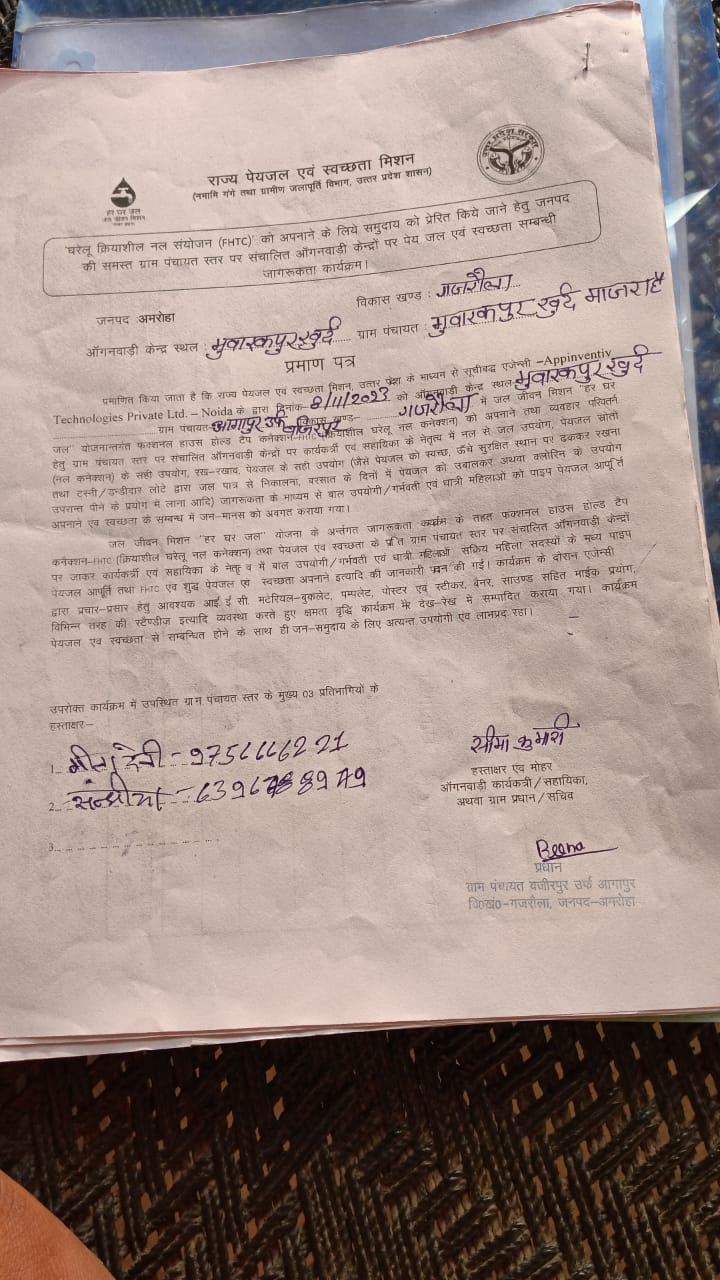 राज्य पेयजल एवं स्वच्छता मिशन
(नमामि गंगे तथा ग्रामीण जलापूर्ति विभाग, उत्तर प्रदेश शासन)
हर घर जल
जल जीवन मिशन
'घरेलू क्रियाशील नल संयोजन (FHTC)' को अपनाने के लिये समुदाय को प्रेरित किये जाने हेतु जनपद
की समस्त ग्राम पंचायत स्तर पर संचालित आँगनवाड़ी केन्द्रों पर पेय जल एवं स्वच्छता सम्बन्धी
जागरूकता कार्यक्रम।
जनपद : अमरोहा विकास खण्ड : गजरौला
आँगनवाड़ी केन्द्र स्थल : मुवारकपुर खुर्द ग्राम पंचायत : मुवारकपुर खुर्द माजरा है
प्रमाण पत्र
प्रमाणित किया जाता है कि राज्य पेयजल एवं स्वच्छता मिशन, उत्तर प्रदेश के माध्यम से सूचीबद्ध एजेन्सी –Appinventiv
Technologies Private Ltd. – Noida के द्वारा दिनांक– 8/11/2023 को आँगनवाड़ी केन्द्र स्थल मुवारकपुर खुर्द
ग्राम पंचायत आगापुर उर्फ वजिरपुर विकास खण्ड– गजरौला में जल जीवन मिशन "हर घर
जल" योजनान्तर्गत फक्शनल हाउस होल्ड टैप कनेक्शन–FHTC (क्रियाशील घरेलू नल कनेक्शन) को अपनाने तथा व्यवहार परिवर्तन
हेतु ग्राम पंचायत स्तर पर संचालित आँगनवाड़ी केन्द्रों पर कार्यकर्त्री एवं सहायिका के नेतृत्व में नल से जल उपयोग, पेयजल स्रोतो
(नल कनेक्शन) के सही उपयोग, रख–रखाव, पेयजल के सही उपयोग (जैसे पेयजल को स्वच्छ, ऊँचे सुरक्षित स्थान पर ढककर रखना
तथा टस्नी/डन्डीदार लोटे द्वारा जल पात्र से निकालना, बरसात के दिनों में पेयजल को उबालकर अथवा क्लोरिन के उपयोग
उपरान्त पीने के प्रयोग में लाना आदि) जागरूकता के माध्यम से बाल उपयोगी/गर्भवती एवं धात्री महिलाओं को पाइप पेयजल आपूर्ति
अपनाने एवं स्वच्छता के सम्बन्ध में जन–मानस को अवगत कराया गया।
जल जीवन मिशन "हर घर जल" योजना के अन्तर्गत जागरूकता कार्यक्रम के तहत फक्शनल हाउस होल्ड टैप
कनेक्शन–FHTC (क्रियाशील घरेलू नल कनेक्शन) तथा पेयजल एवं स्वच्छता के प्रति ग्राम पंचायत स्तर पर संचालित आँगनवाड़ी केन्द्रों
पर जाकर कार्यकर्त्री एवं सहायिका के नेतृत्व में बाल उपयोगी/गर्भवती एवं धात्री महिलाओं सक्रिय महिला सदस्यों के मध्य पाइप
पेयजल आपूर्ति तथा FHTC एवं शुद्ध पेयजल एवं स्वच्छता अपनाने इत्यादि की जानकारी प्रदान की गई। कार्यक्रम के दौरान एजेन्सी
द्वारा प्रचार–प्रसार हेतु आवश्यक आई.ई.सी. मटेरियल–बुकलेट, पम्पलेट, पोस्टर एवं स्टीकर, बैनर, साउण्ड सहित माईक प्रयोग,
विभिन्न तरह की स्टैण्डीज इत्यादि व्यवस्था करते हुए क्षमता वृद्धि कार्यक्रम मेरे देख–रेख में सम्पादित कराया गया। कार्यक्रम
पेयजल एवं स्वच्छता से सम्बन्धित होने के साथ ही जन–समुदाय के लिए अत्यन्त उपयोगी एवं लाभप्रद रहा।
उपरोक्त कार्यक्रम में उपस्थित ग्राम पंचायत स्तर के मुख्य 03 प्रतिभागियों के
हस्ताक्षर–
1. गीता देवी – 9756666221
2. – 6396
3.
सीमा कुमारी
हस्ताक्षर एवं मोहर
आँगनवाड़ी कार्यकत्री/सहायिका,
अथवा ग्राम प्रधान/सचिव
Beena
प्रधान
ग्राम पंचायत वजीरपुर उर्फ आगापुर
वि०खं०–गजरौला, जनपद–अमरोहा